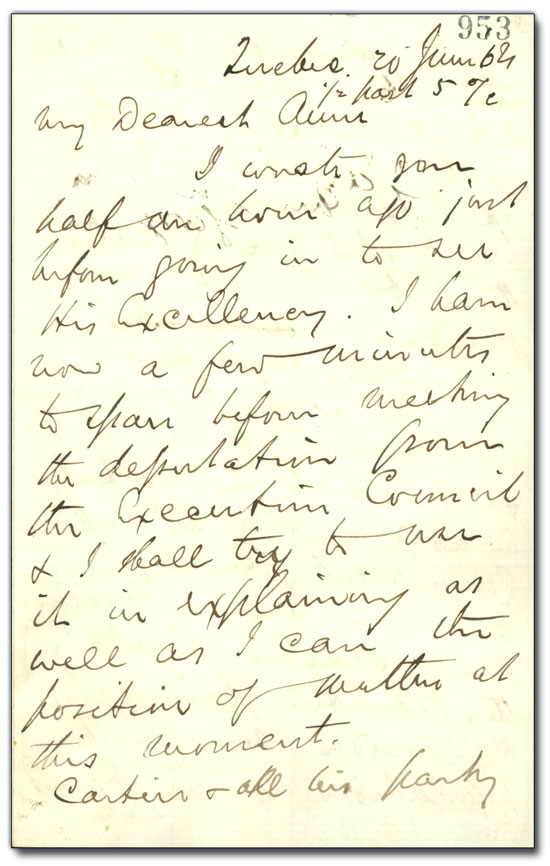 953
Quebec. 20 June 64
1/2 past 5 o/c
My Dearest Anne
I wrote you
half an hour ago just
before going in to see
His Excellency. I have
now a few minutes
to spare before meeting
the deputation from
the Executive Council
& I shall try to use
it in explaining as
well as I can the
position of matters at
this moment.
Cartier & all his party